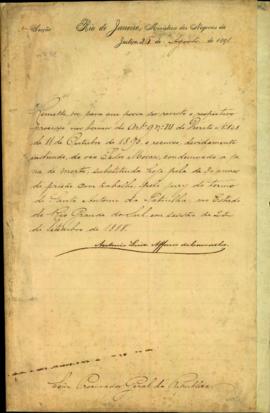 Secção
Rio de Janeiro, Ministerio dos Negocios da
Justiça, de Agosto de 1891.
Remetto-vos para que possa ser revisto o respectivo
processo nos termos do Art. 9 nº III do Decreto nº 848
de 11 de Outubro de 1890, o recurso, devidamente
instruido, do réo condemnado a pe-
na de morte, substituida hoje pela de 30 annos
de prisão com trabalho, pelo jury do termo
de Santo Antonio da Patrulha, no Estado
do Rio Grande do Sul, em sessão de
de Setembro de 1888.
Antonio Luiz Affonso de Carvalho
Procurador Geral da Republica